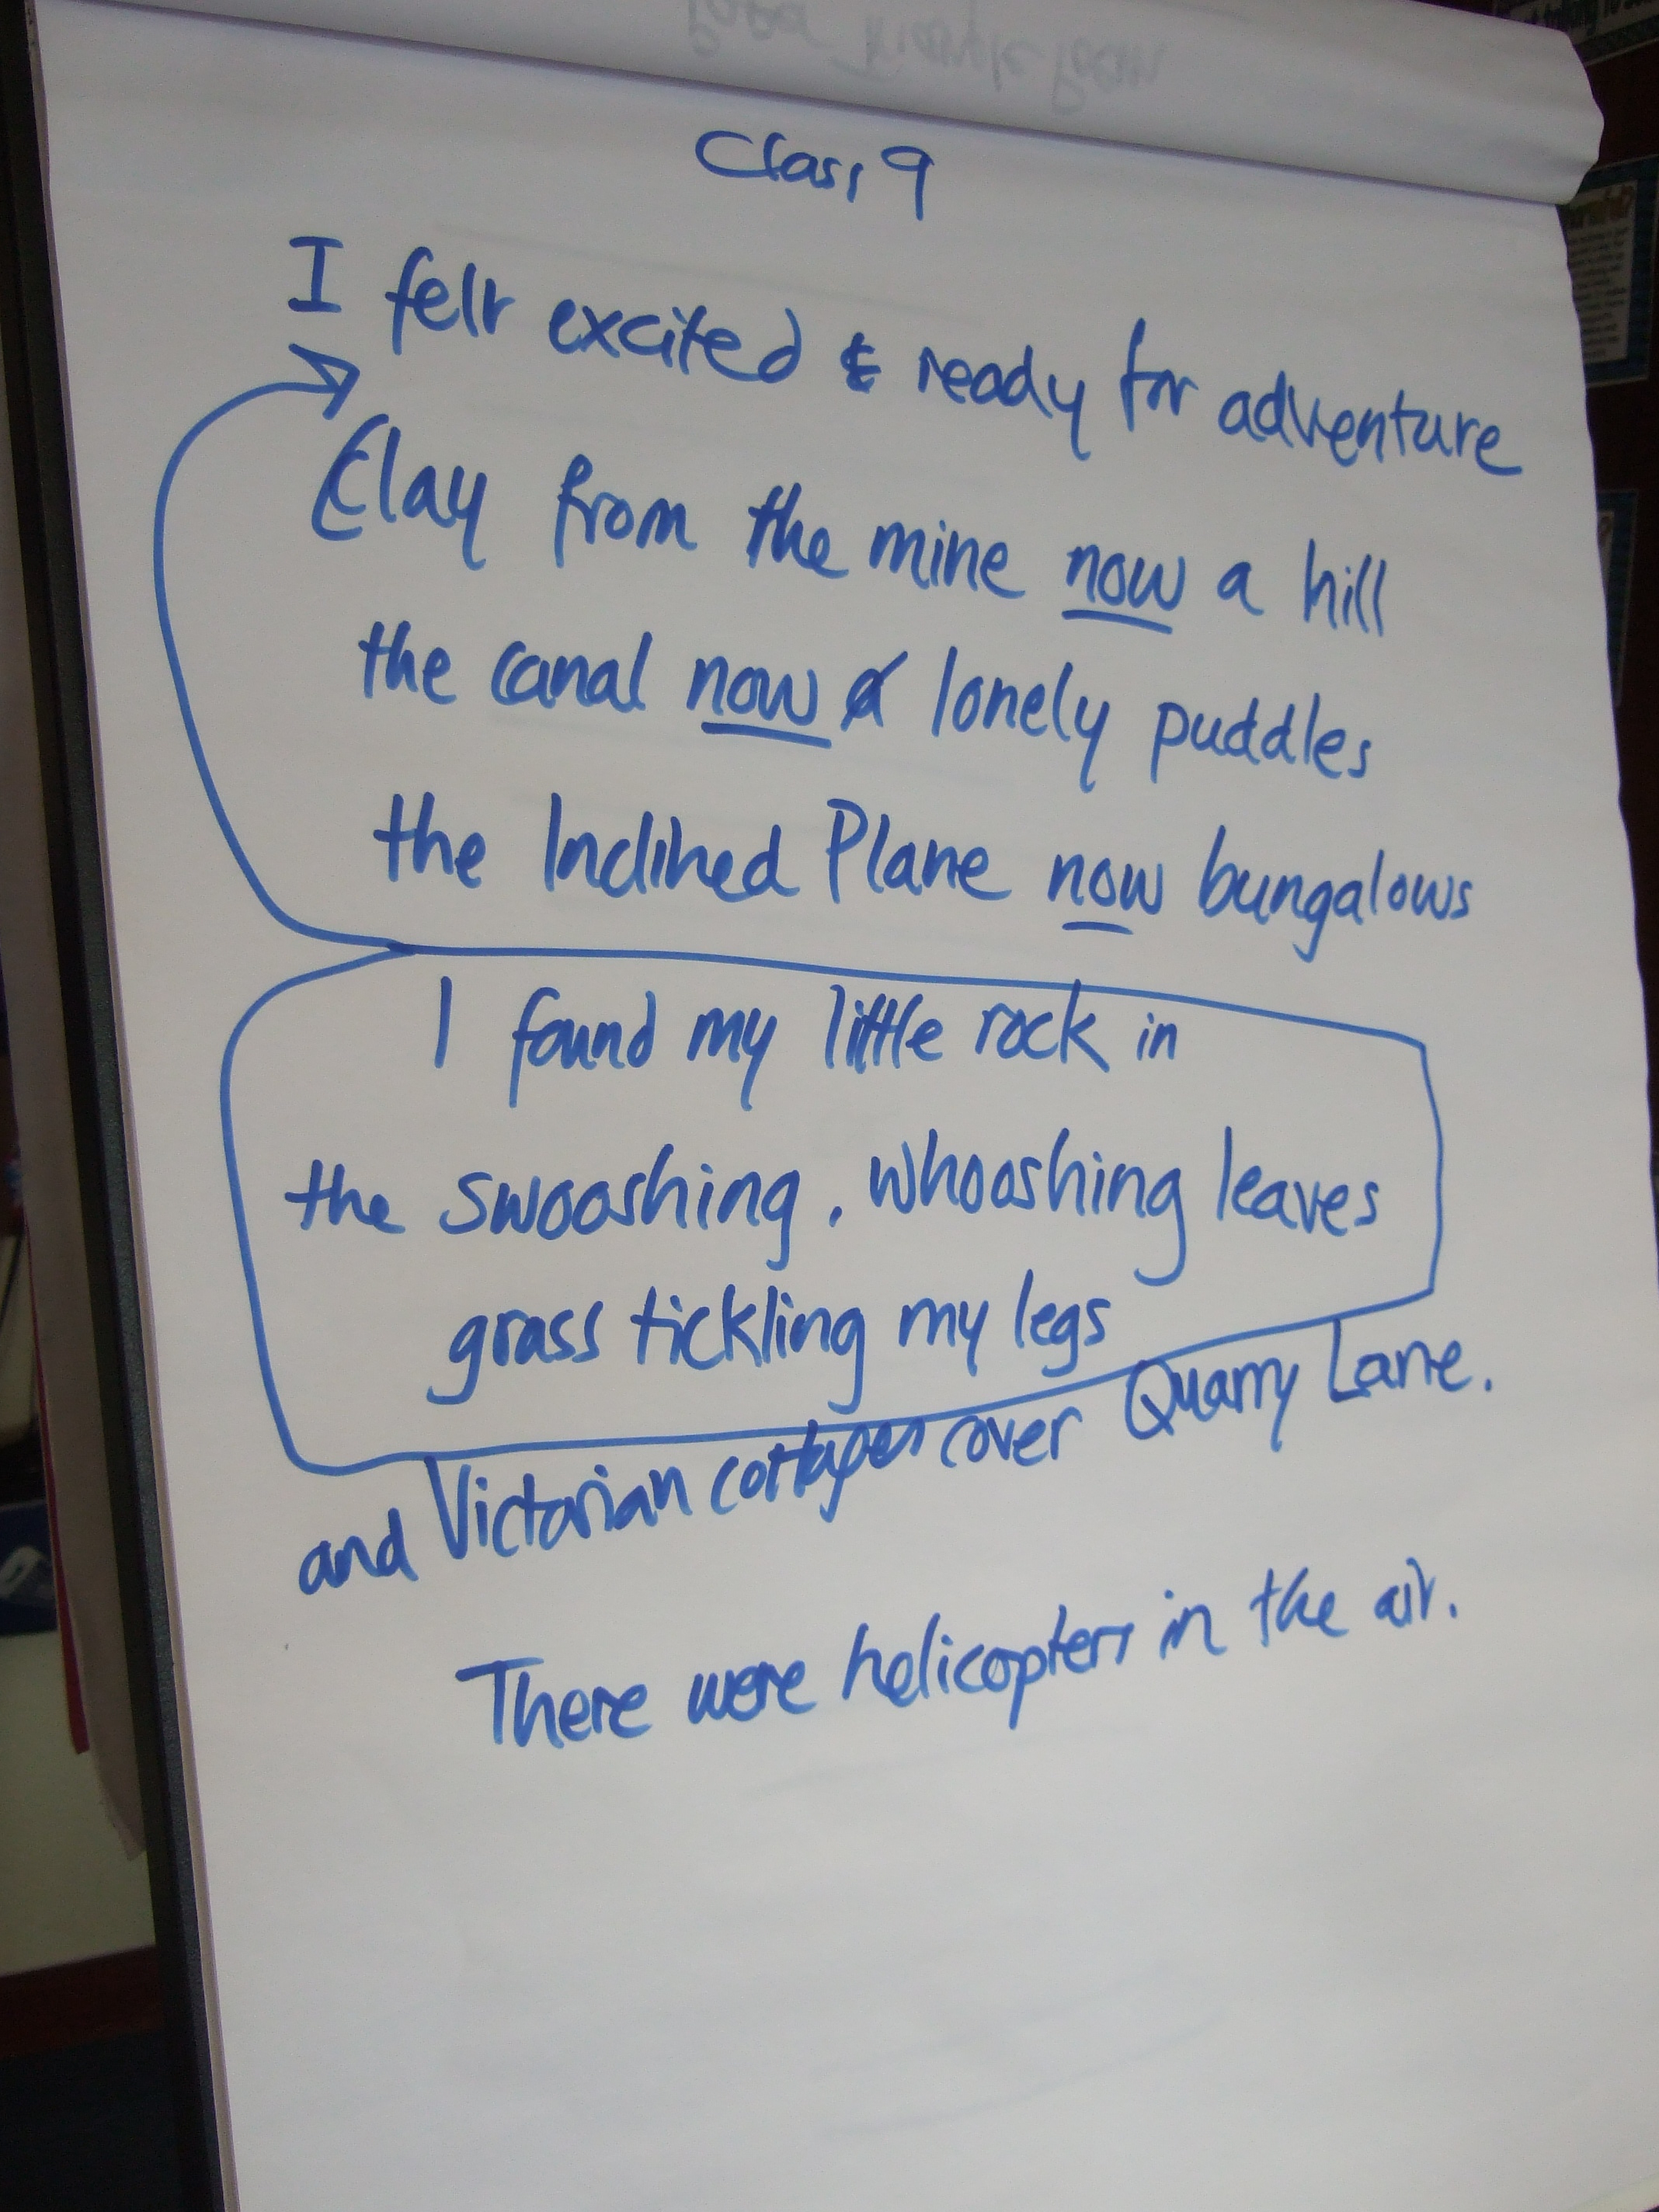 Class 9
I felt excited & ready for adventure
Clay from the mine now a hill
the canal now lonely puddles
the Inclined Plane now bungalows
I found my little rock in
the swooshing, whooshing leaves
grass tickling my legs
and Victorian cottages cover Quarry Lane.
There were helicopters in the air.